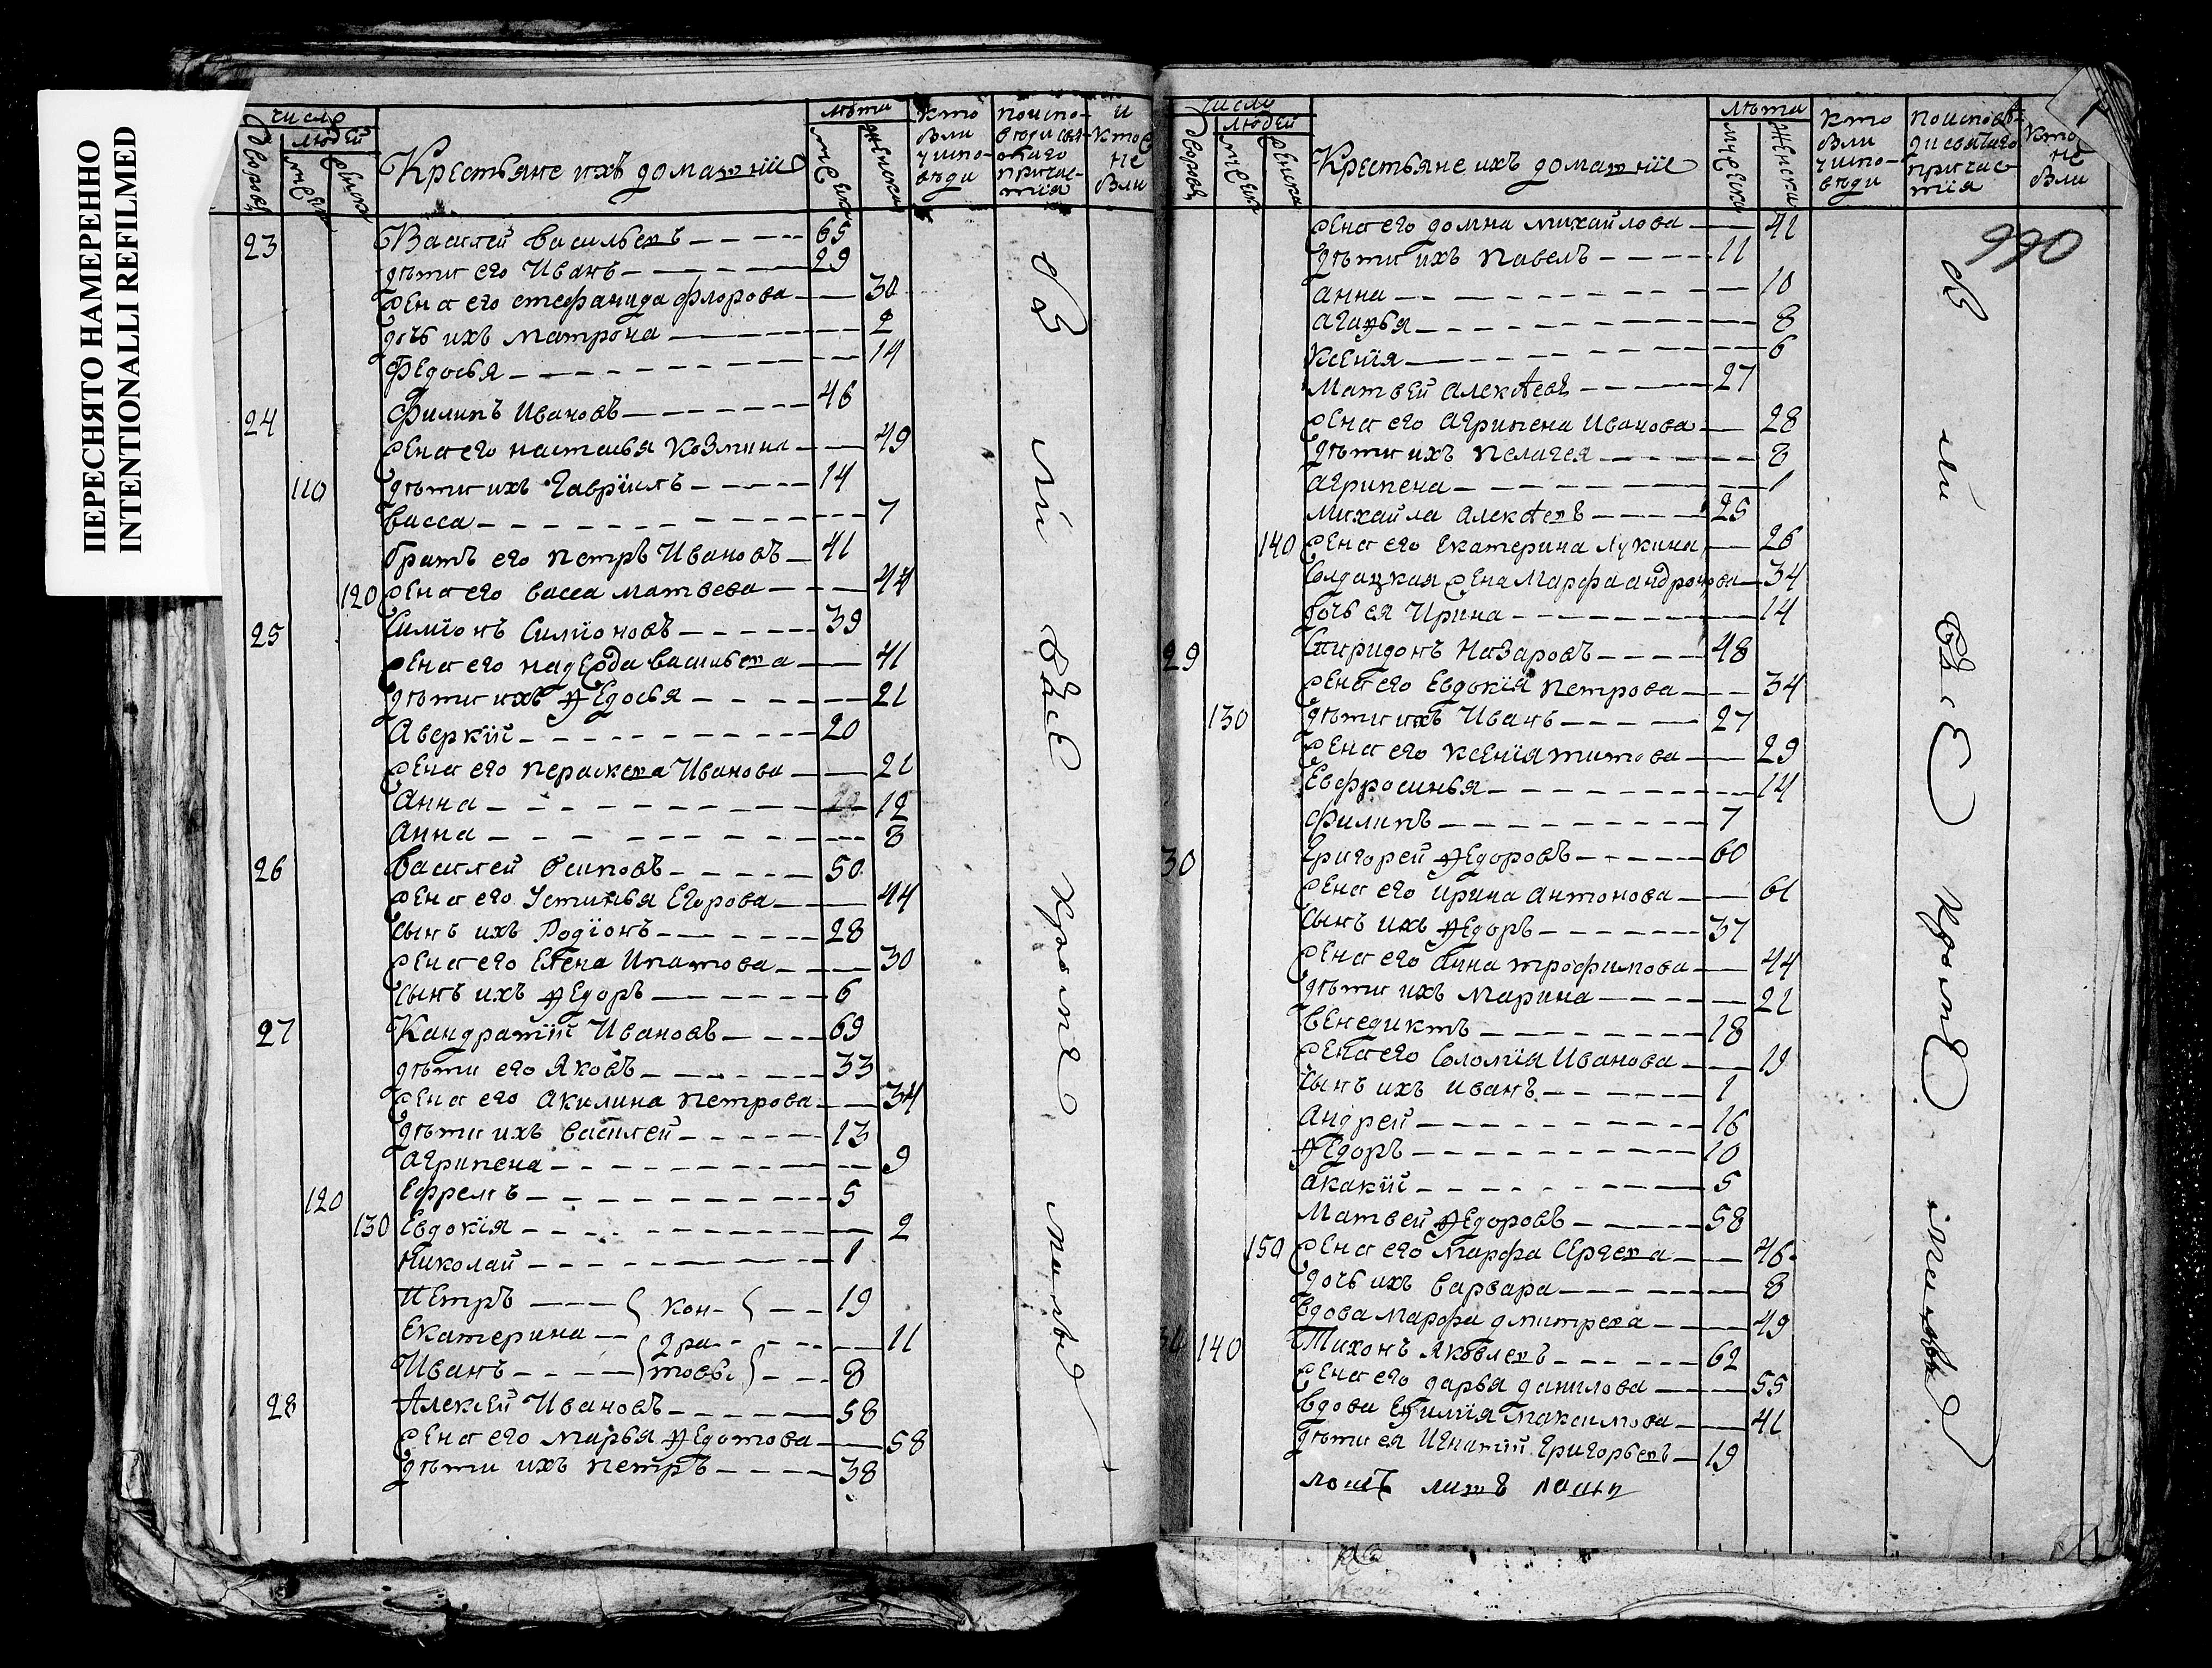 ПЕРЕСНЯТО НАМЕРЕННО
INTENTIONALLI REFILMED
число
дворовъ
людей
мужеска
женска
Крестьяне ихъ домашнiе
лѣта
мужеска
женска
кто были у исповѣди
по исповѣди святаго причастiя
и кто не были
23 Василей Васильевъ 65
дѣти его Иванъ 29
жена его Стефанида Флорова 30
дочь ихъ Матрона 2
Федосья 14
24 Филипъ Ивановъ 46
жена его Настасья Козмина 49
110 дѣти ихъ Гаврiилъ 14
Васса 7
братъ его Петръ Ивановъ 41
120 жена его Васса Матвеева 44
25 Симiонъ Симiоновъ 39
жена его Надежда Васильева 41
дѣти ихъ Ѳедосья 21
Аверкiй 20
жена его Пераскева Иванова 21
Анна 12
Анна 8
26 Василей Осиповъ 50
жена его Устинья Егорова 44
сынъ ихъ Родiонъ 28
жена его Елена Ипатова 30
сынъ ихъ Ѳедоръ 6
27 Кандратiй Ивановъ 69
дѣти его Яковъ 33
жена его Акилина Петрова 34
дѣти ихъ Василей 13
Агрипена 9
120 Ефремъ 5
130 Евдокiя 2
Николай 1
Петръ кон- 19
Екатерина дра- 11
Иванъ товы 8
28 Алексей Ивановъ 58
жена его Марья Ѳедотова 58
дѣти ихъ Петръ 38
бы ли всѣ кроме малыхъ
число
дворовъ
людей
мужеска
женска
Крестьяне ихъ домашнiе
лѣта
мужеска
женска
кто были у исповѣди
по исповѣди святаго причастiя
кто не были
990
жена его Домна Михайлова 41
дѣти ихъ Павелъ 11
Анна 10
Агафья 8
Ксенiя 6
Матвей Алексѣевъ 27
жена его Агрипена Иванова 28
дѣти ихъ Пелагея 8
Агрипена 1
Михайла Алексѣевъ 25
140 жена его Екатерина Лукина 26
Солдацкая жена Марфа Андронова 34
дочь ея Ирина 14
29 Спиридонъ Назаровъ 48
жена его Евдокiя Петрова 34
130 дѣти ихъ Иванъ 27
жена его Ксенiя Титова 29
Евфросинья 14
Филипъ 7
30 Григорей Ѳедоровъ 60
жена его Ирина Антонова 61
сынъ ихъ Ѳедоръ 37
жена его Анна Трофимова 44
дѣти ихъ Марина 21
Венедиктъ 18
жена его Соломiя Иванова 19
сынъ ихъ Иванъ 1
Андрей 16
Ѳедоръ 10
Акакiй 5
Матвей Ѳедоровъ 58
150 жена его Марфа Сергева 46
дочь ихъ Варвара 8
вдова Марфа Дмитрева 49
31 140 Тихонъ Яковлевъ 62
жена его Дарья Данилова 55
вдова Ефимiя Максимова 41
дѣти ея Игнатiй Григорьевъ 19
бы ли всѣ кроме малыхъ